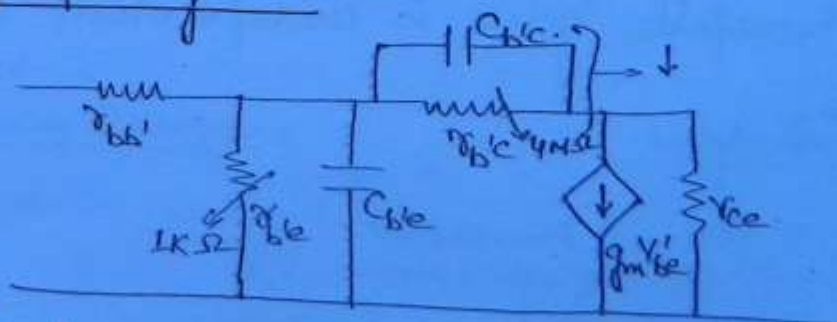 Cb'c.
↓
rbb'
rb'c 4MΩ
1KΩ rb'e
Cb'e
gmVb'e
rce